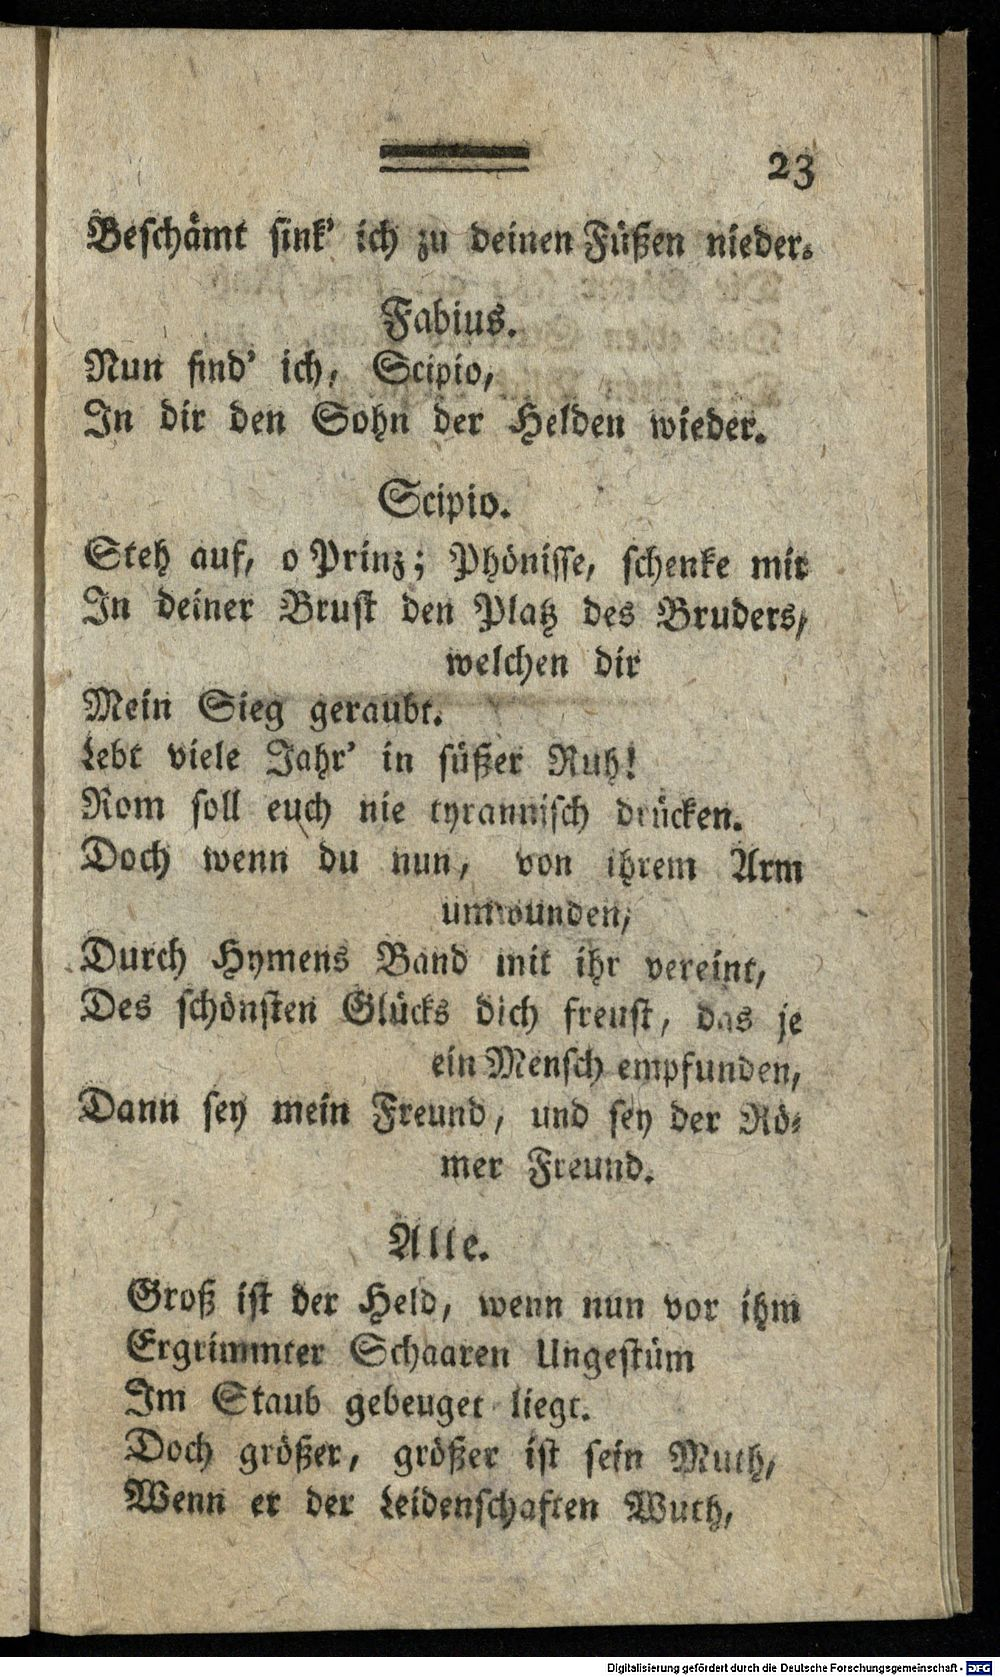 23
Beschämt sink' ich zu deinen Füßen nieder.
Fabius.
Nun find' ich, Scipio,
In dir den Sohn der Helden wieder.
Scipio.
Steh auf, o Prinz; Phönisse, schenke mir
In deiner Brust den Platz des Bruders,
welchen dir
Mein Sieg geraubt.
Lebt viele Jahr' in süßer Ruh!
Rom soll euch nie tyrannisch drücken.
Doch wenn du nun, von ihrem Arm
umwunden,
Durch Hymens Band mit ihr vereint,
Des schönsten Glücks dich freust, das je
ein Mensch empfunden,
Dann sey mein Freund, und sey der Rö-
mer Freund.
Alle.
Groß ist der Held, wenn nun vor ihm
Ergrimmter Schaaren Ungestüm
Im Staub gebeuget liegt.
Doch größer, größer ist sein Muth,
Wenn er der Leidenschaften Wuth,
Digitalisierung gefördert durch die Deutsche Forschungsgemeinschaft - DFG